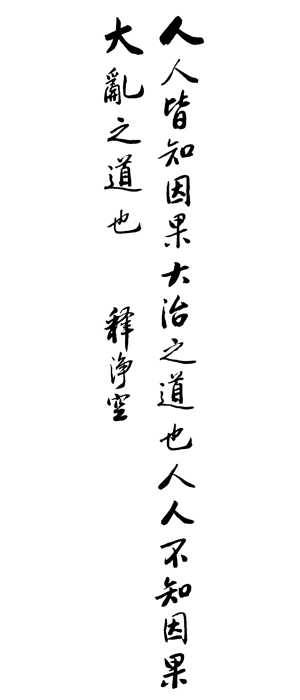 人人皆知因果大治之道也人人不知因果
大亂之道也 釋淨空